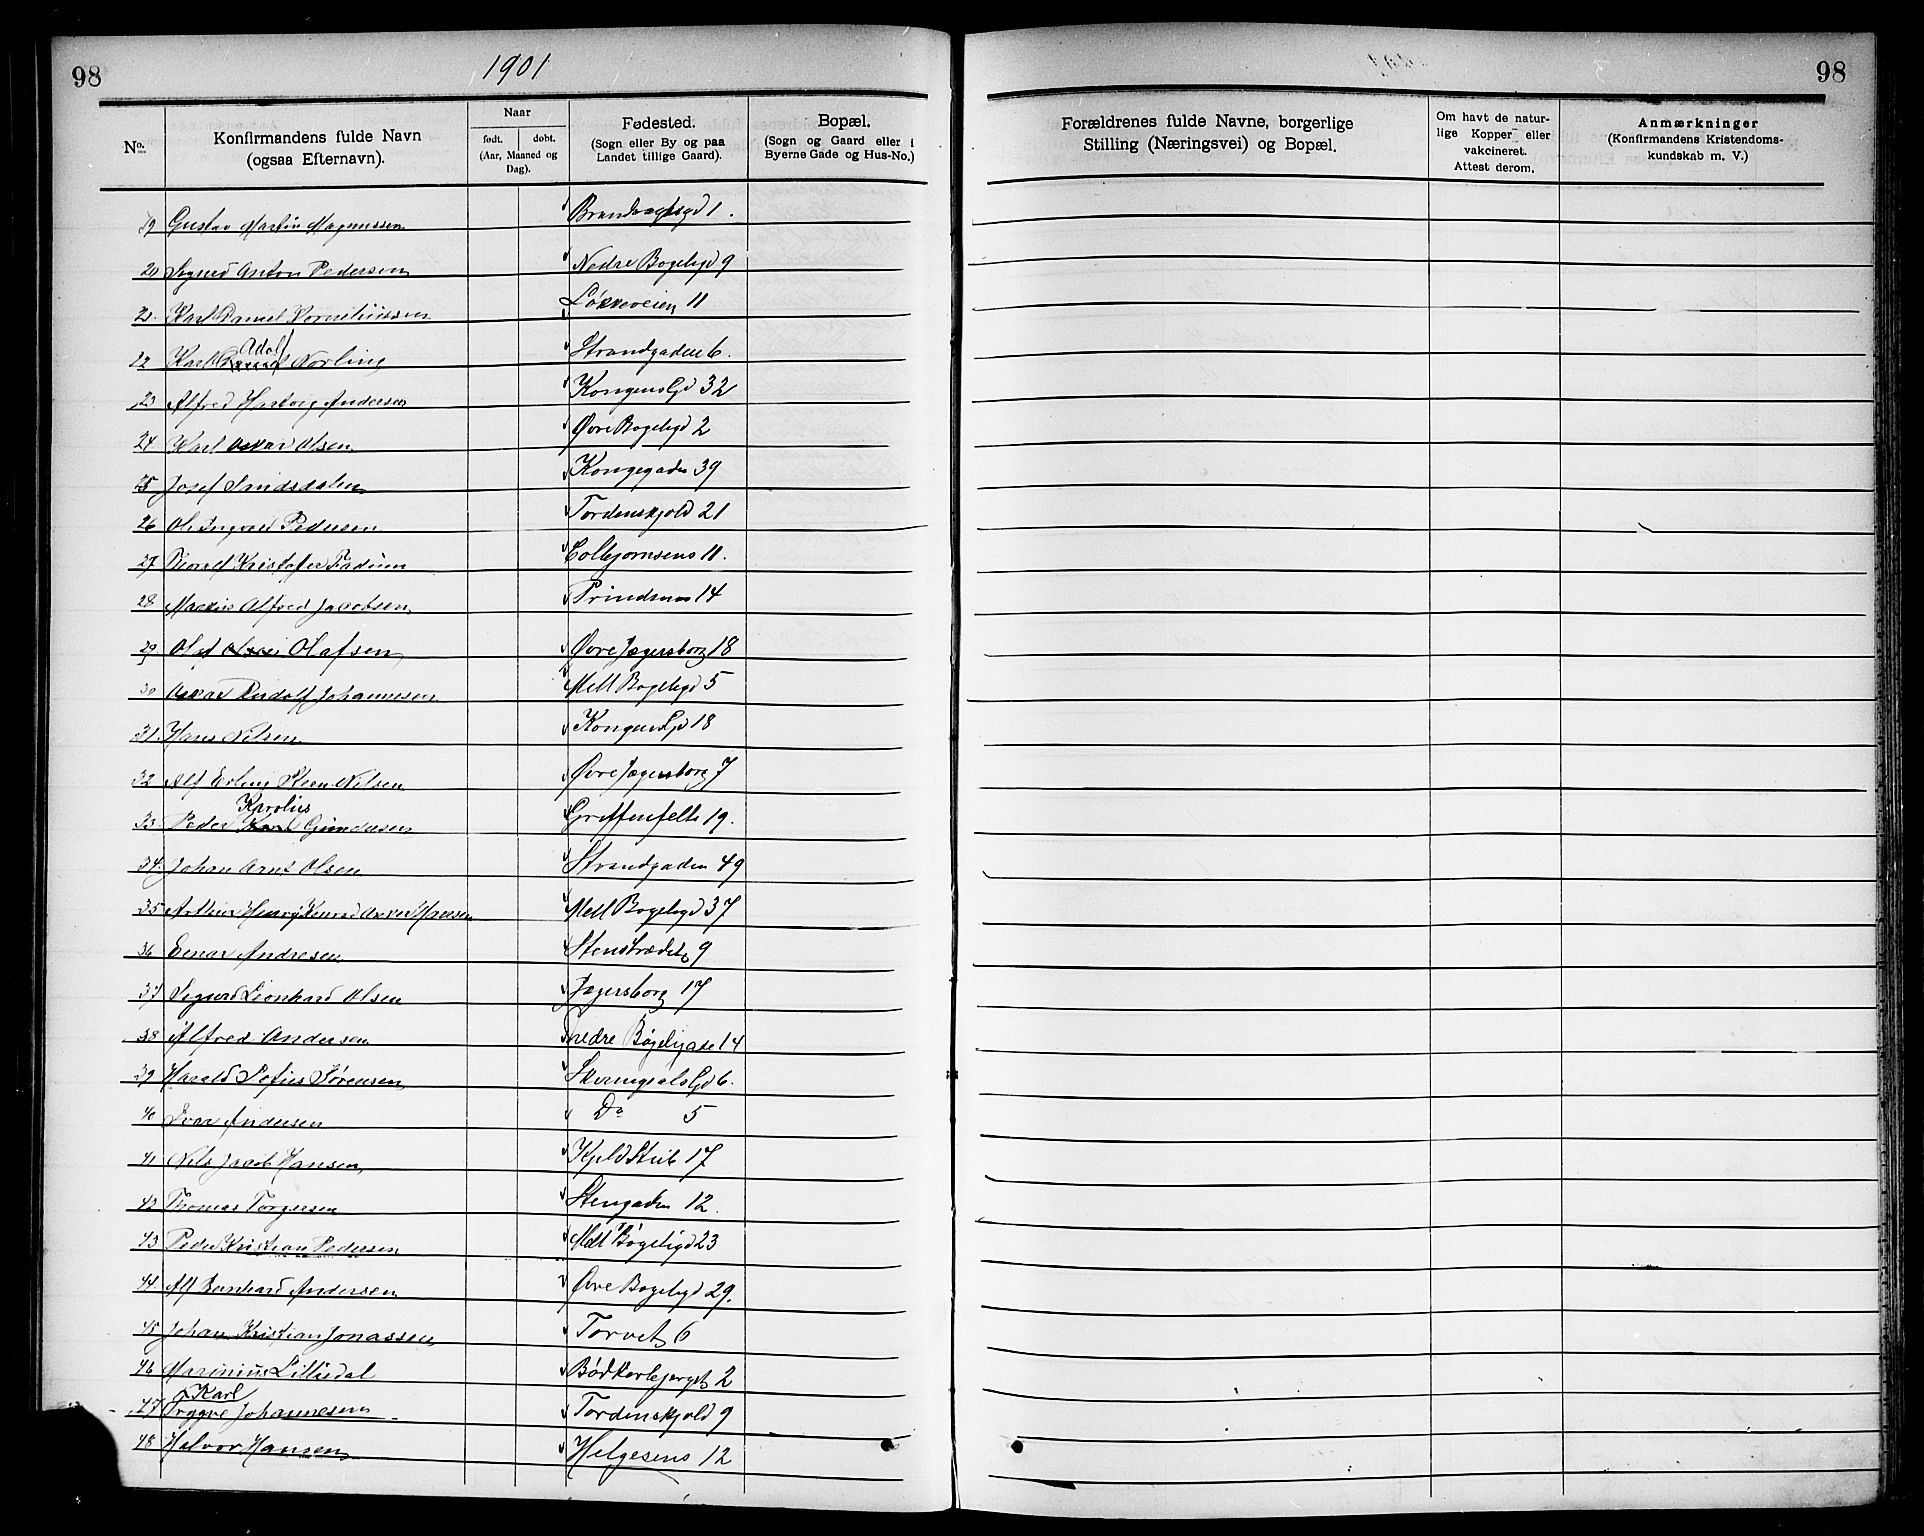 98
1901
No.
Konfirmandens fulde Navn
(ogsaa Efternavn).
Naar
født. døbt.
(Aar, Maaned og
Dag).
Fødested.
(Sogn eller By og paa
Landet tillige Gaard).
Bopæl.
(Sogn og Gaard eller i
Byerne Gade og Hus-No.)
19 Gustav Martin Magnussen Brandvagtsgd 1.
20 Sigurd Anton Pedersen Nedre Bøgeligd 9
21. Karl Daniel Korneliussen Løkkeveien 11
Adolf
22 Karl Norling Strandgaden 6.
23 Alfred Hartvig Andersen Kongensgd 32
24 Karl Oskar Olsen Øvre Bøgeligd 2
25 Josef Sandsdalen Kongegaden 39
26 Ole Ingvald Pedersen Tordenskjold 21
27 Kristofer Fadum Colbjørnsens 11.
28 Markus Alfred Jacobsen Prindsens 14
29 Olaf Olafsen Øvre Jægersborg 18
30 Oskar Rudolf Johannesen Mell Bøgeligd 5
31. Hans Nilsen Kongensgd 18
32 Alf Erling Steen Nilsen Øvre Jægersborg 7
Karolius
33 Peder Karl Gundersen Griffenfelts 19.
34. Johan Arnt Olsen Strandgaden 49
35 Arthur Henry Konrad Oskar Hansen Mell Bøgeligd 37
36 Einar Andresen Stenstrædet 9
37 Sigurd Leonhard Olsen Jægersborg 17
38 Alfred Andersen nedre Bøgeligade 14
39 Harald Sofus Sørensen Skiringsals Gd 6.
40 Ivar Andersen Do 5
41 Nils Jacob Hansen Kjeld Stub 17
42 Thomas Torgersen Stengaden 12.
43 Peder Kristian Pedersen Mell Bøgeligd 23
44. Alf Bernhard Andersen Øvre Bøgeligd 29.
45 Johan Kristian Jonassen Torvet 6
46 Marinius Lilledal Bødkerbjerget 2
Karl
47 Trygve Johannesen Tordenskjold 9
48 Halvor Hansen Helgesens 12
98
Forældrenes fulde Navne, borgerlige
Stilling (Næringsvei) og Bopæl.
Om havt de natur-
lige Kopper eller
vakcineret.
Attest derom.
Anmærkninger
(Konfirmandens Kristendoms-
kundskab m. V.)